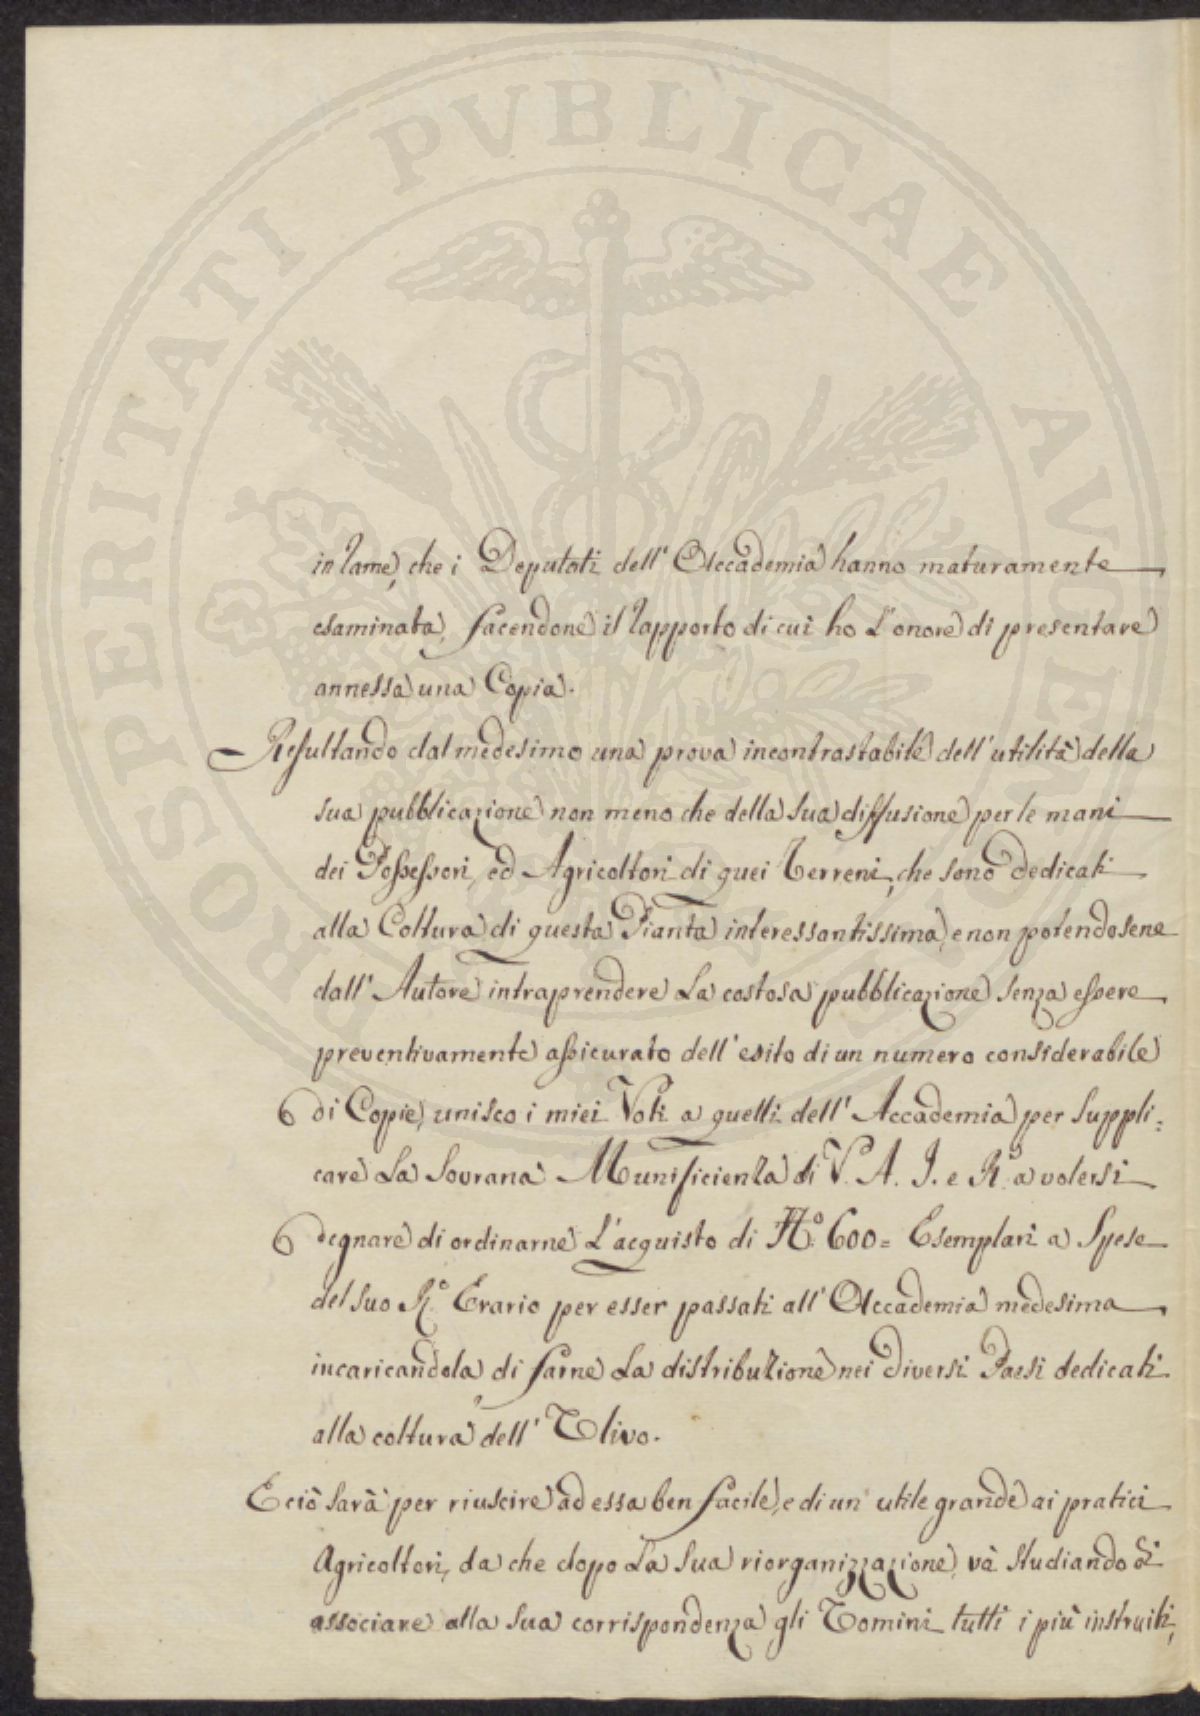 PROSPERITATI PVBLICAE AVGENDAE
in Rame, che i Deputati dell' Accademia hanno maturamente
esaminata, facendone il Rapporto di cui ho L'onore di presentare
annessa una Copia.
Resultando dal medesimo una prova incontrastabile dell'utilità della
sua pubblicazione non meno che della Sua diffusione per le mani
dei Possessori, ed Agricoltori di quei Terreni, che sono dedicati
alla Coltura di questa Pianta interessantissima, e non potendosene
dall' Autore intraprendere La costosa pubblicazione senza essere
preventivamente assicurato dell'esito di un numero considerabile
di Copie, unisco i miei Voti a quelli dell' Accademia per Suppli=
care La Sovrana Munificienza di V. A. I. e R. a volersi
degnare di ordinarne L'acquisto di N.° 600= Esemplari a Spese
del suo R.° Erario per esser passati all' Accademia medesima
incaricandola di farne La distribuzione nei diversi Paesi dedicati
alla coltura dell' Olivo.
E ciò sarà per riuscire ad essa ben facile, e di un utile grande ai pratici
Agricoltori, da che dopo La Sua riorganizzazione, và Studiando di
associare alla Sua corrispondenza gli Uomini tutti i più instruiti,